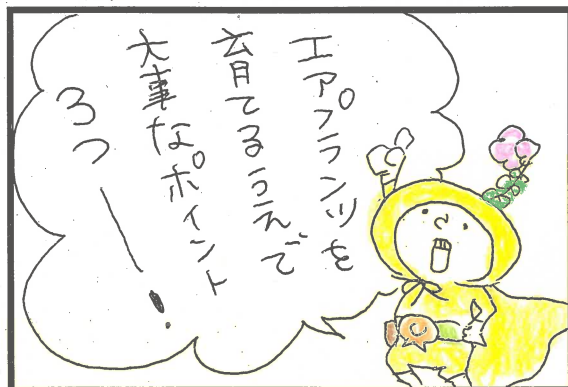 エアプランツを
育てるうえで
大事なポイント
3つ ー!